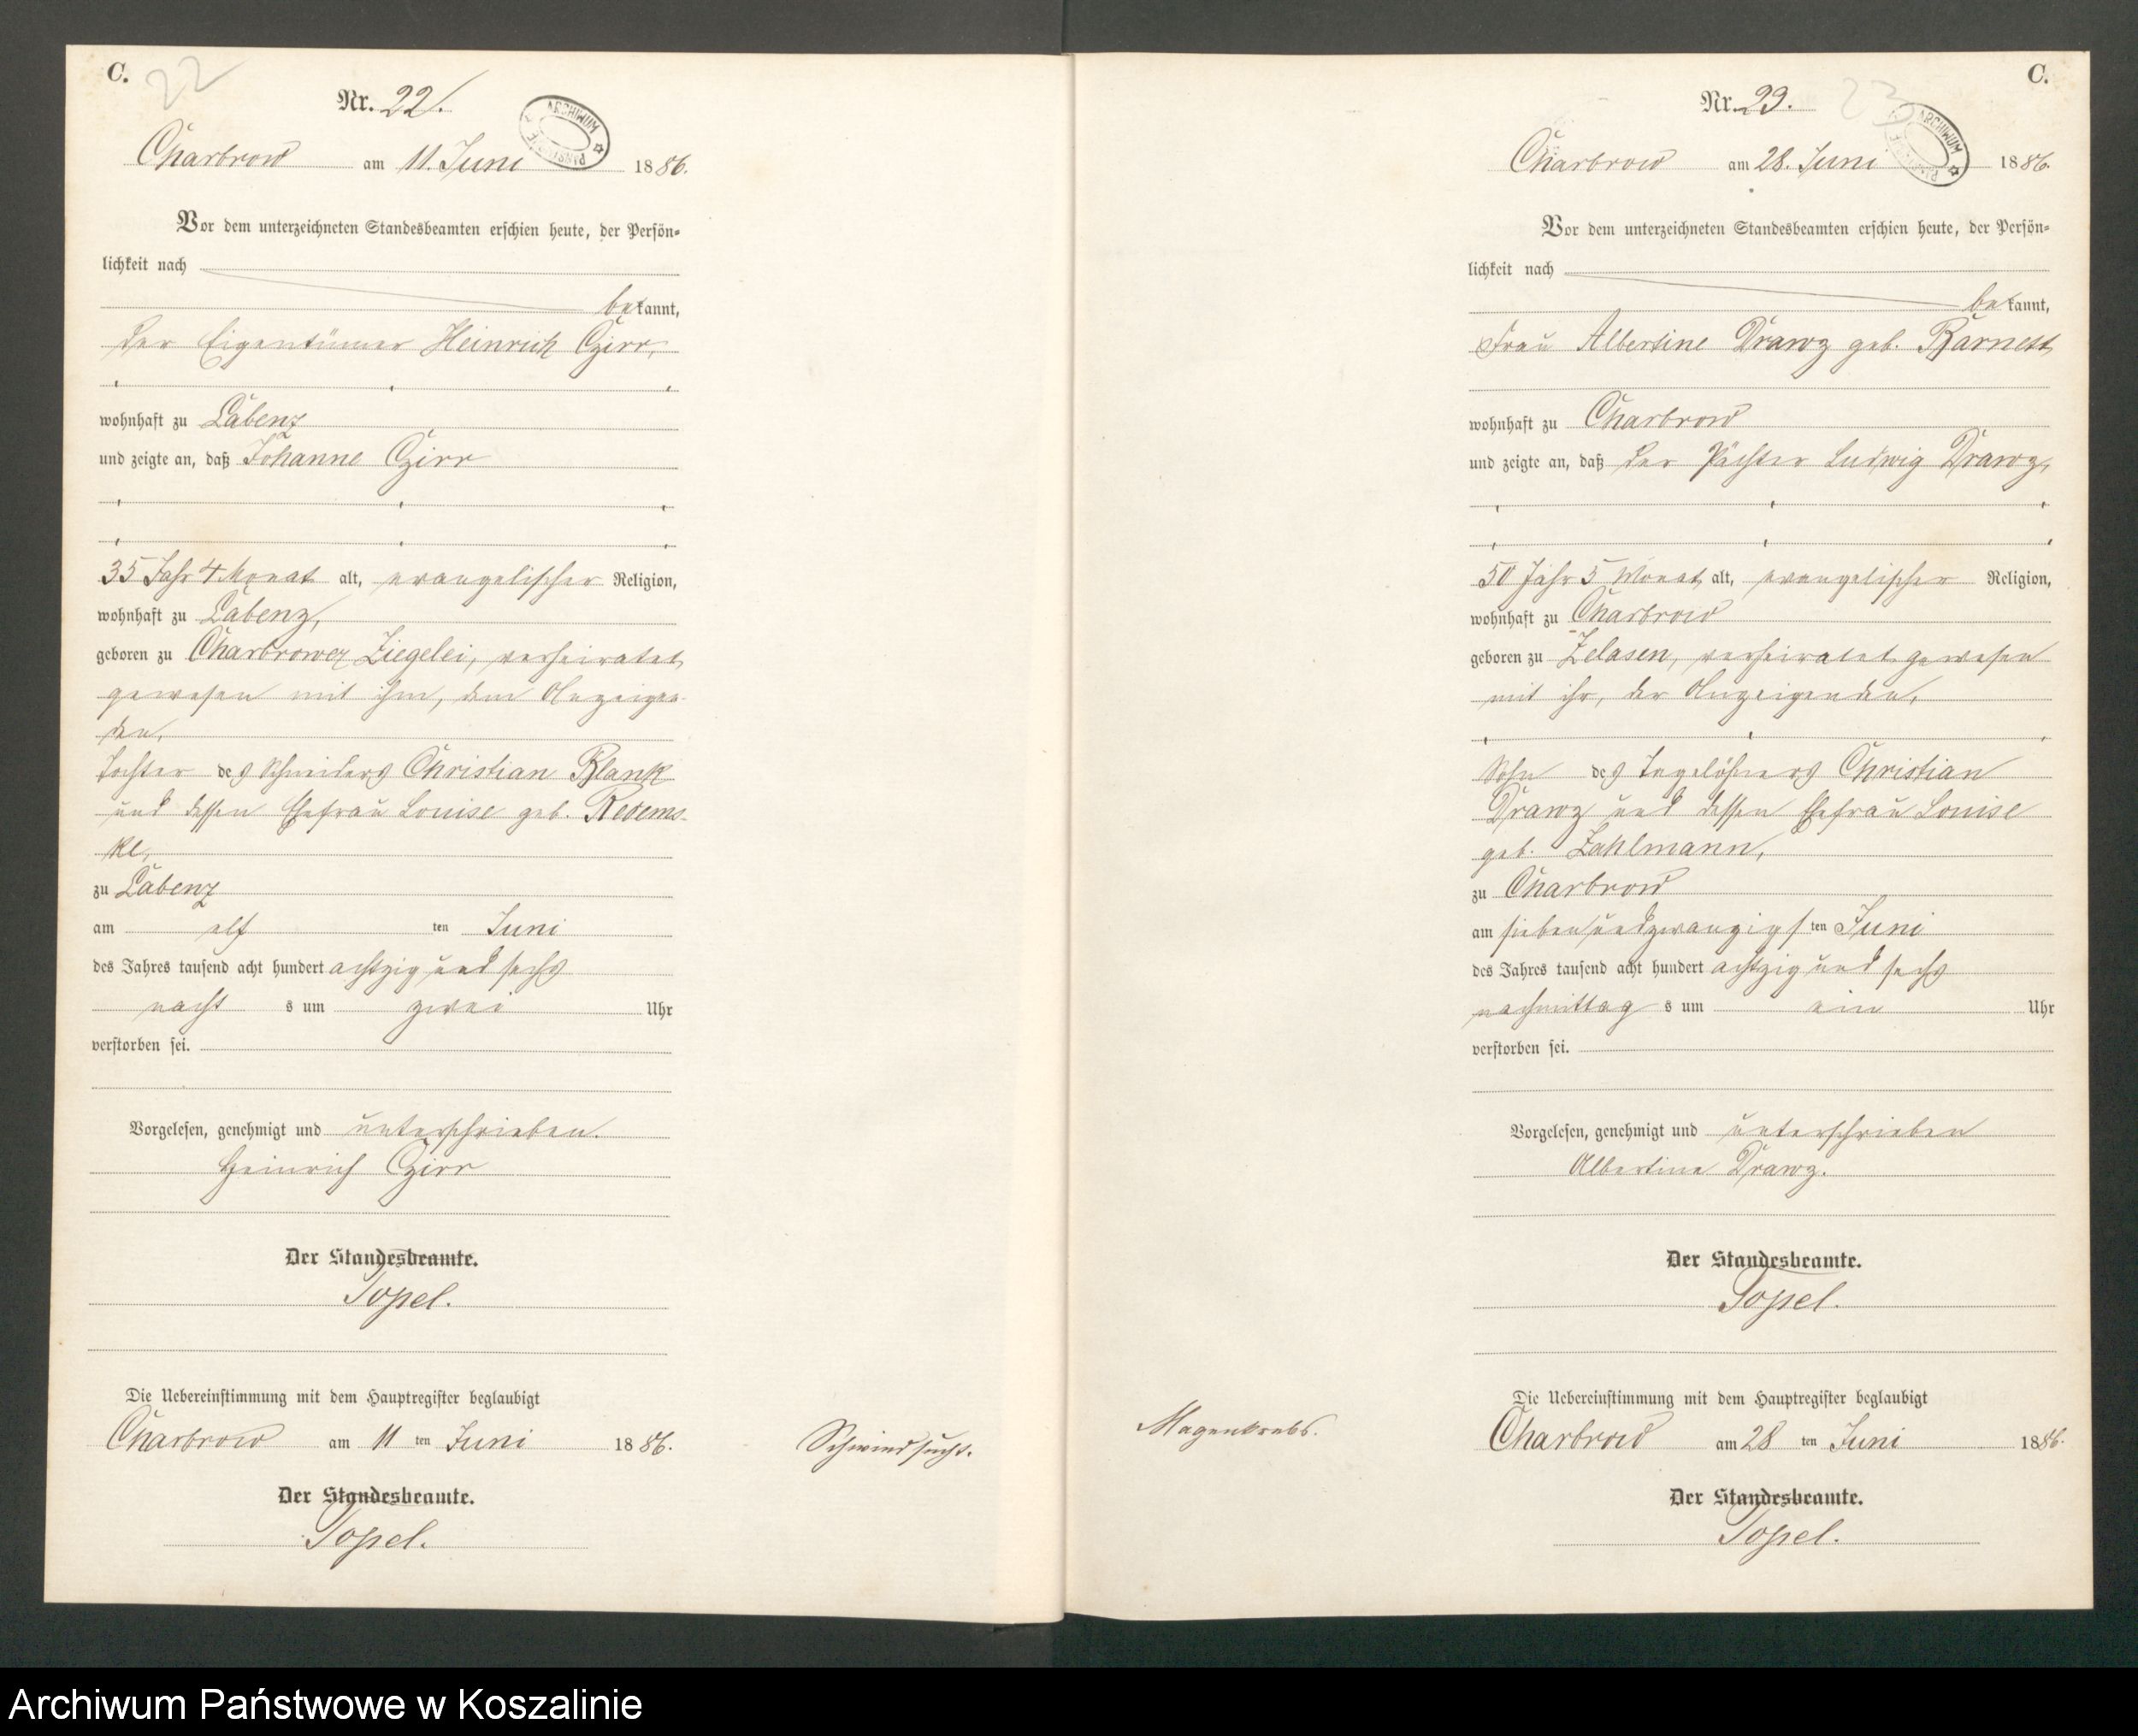 C.
22
Nr. 22.
ARCHIWUM
Charbrow am 11. Juni 1886.
Vor dem unterzeichneten Standesbeamten erschien heute, der Persön-
lichkeit nach
bekannt,
der Eigentümer Heinrich Czirr,
wohnhaft zu Labenz
und zeigte an, daß Johanne Czirr
35 Jahr 4 Monat alt, evangelischer Religion,
wohnhaft zu Labenz,
geboren zu Charbrower Ziegelei, verheiratet
gewesen mit ihm, dem Anzeigen-
den,
Tochter des Schneiders Christian Blank
und dessen Ehefrau Louise geb. Redems-
ke,
zu Labenz
am elf ten Juni
des Jahres tausend acht hundert achtzig und sechs
nacht s um zwei Uhr
verstorben sei.
Vorgelesen, genehmigt und unterschrieben.
Heinrich Czirr
Der Standesbeamte.
Topel.
Die Uebereinstimmung mit dem Hauptregister beglaubigt
Charbrow am 11 ten Juni 1886.
Der Standesbeamte.
Topel.
Schwindsucht.
C.
23
Nr. 23.
ARCHIWUM
Charbrow am 28. Juni 1886.
Vor dem unterzeichneten Standesbeamten erschien heute, der Persön-
lichkeit nach
bekannt,
Frau Albertine Drawz geb. Barnett
wohnhaft zu Charbrow
und zeigte an, daß der Pächter Ludwig Drawz,
50 Jahr 5 Monat alt, evangelischer Religion,
wohnhaft zu Charbrow
geboren zu Zelasen, verheiratet gewesen
mit ihr, der Anzeigenden,
Sohn des Tagelöhners Christian
Drawz und dessen Ehefrau Louise
geb. Zahlmann,
zu Charbrow
am siebenundzwanzigs ten Juni
des Jahres tausend acht hundert achtzig und sechs
nachmittag s um ein Uhr
verstorben sei.
Vorgelesen, genehmigt und unterschrieben
Albertine Drawz.
Der Standesbeamte.
Topel.
Die Uebereinstimmung mit dem Hauptregister beglaubigt
Charbrow am 28 ten Juni 1886.
Der Standesbeamte.
Topel.
Magenkrebs.
Archiwum Państwowe w Koszalinie